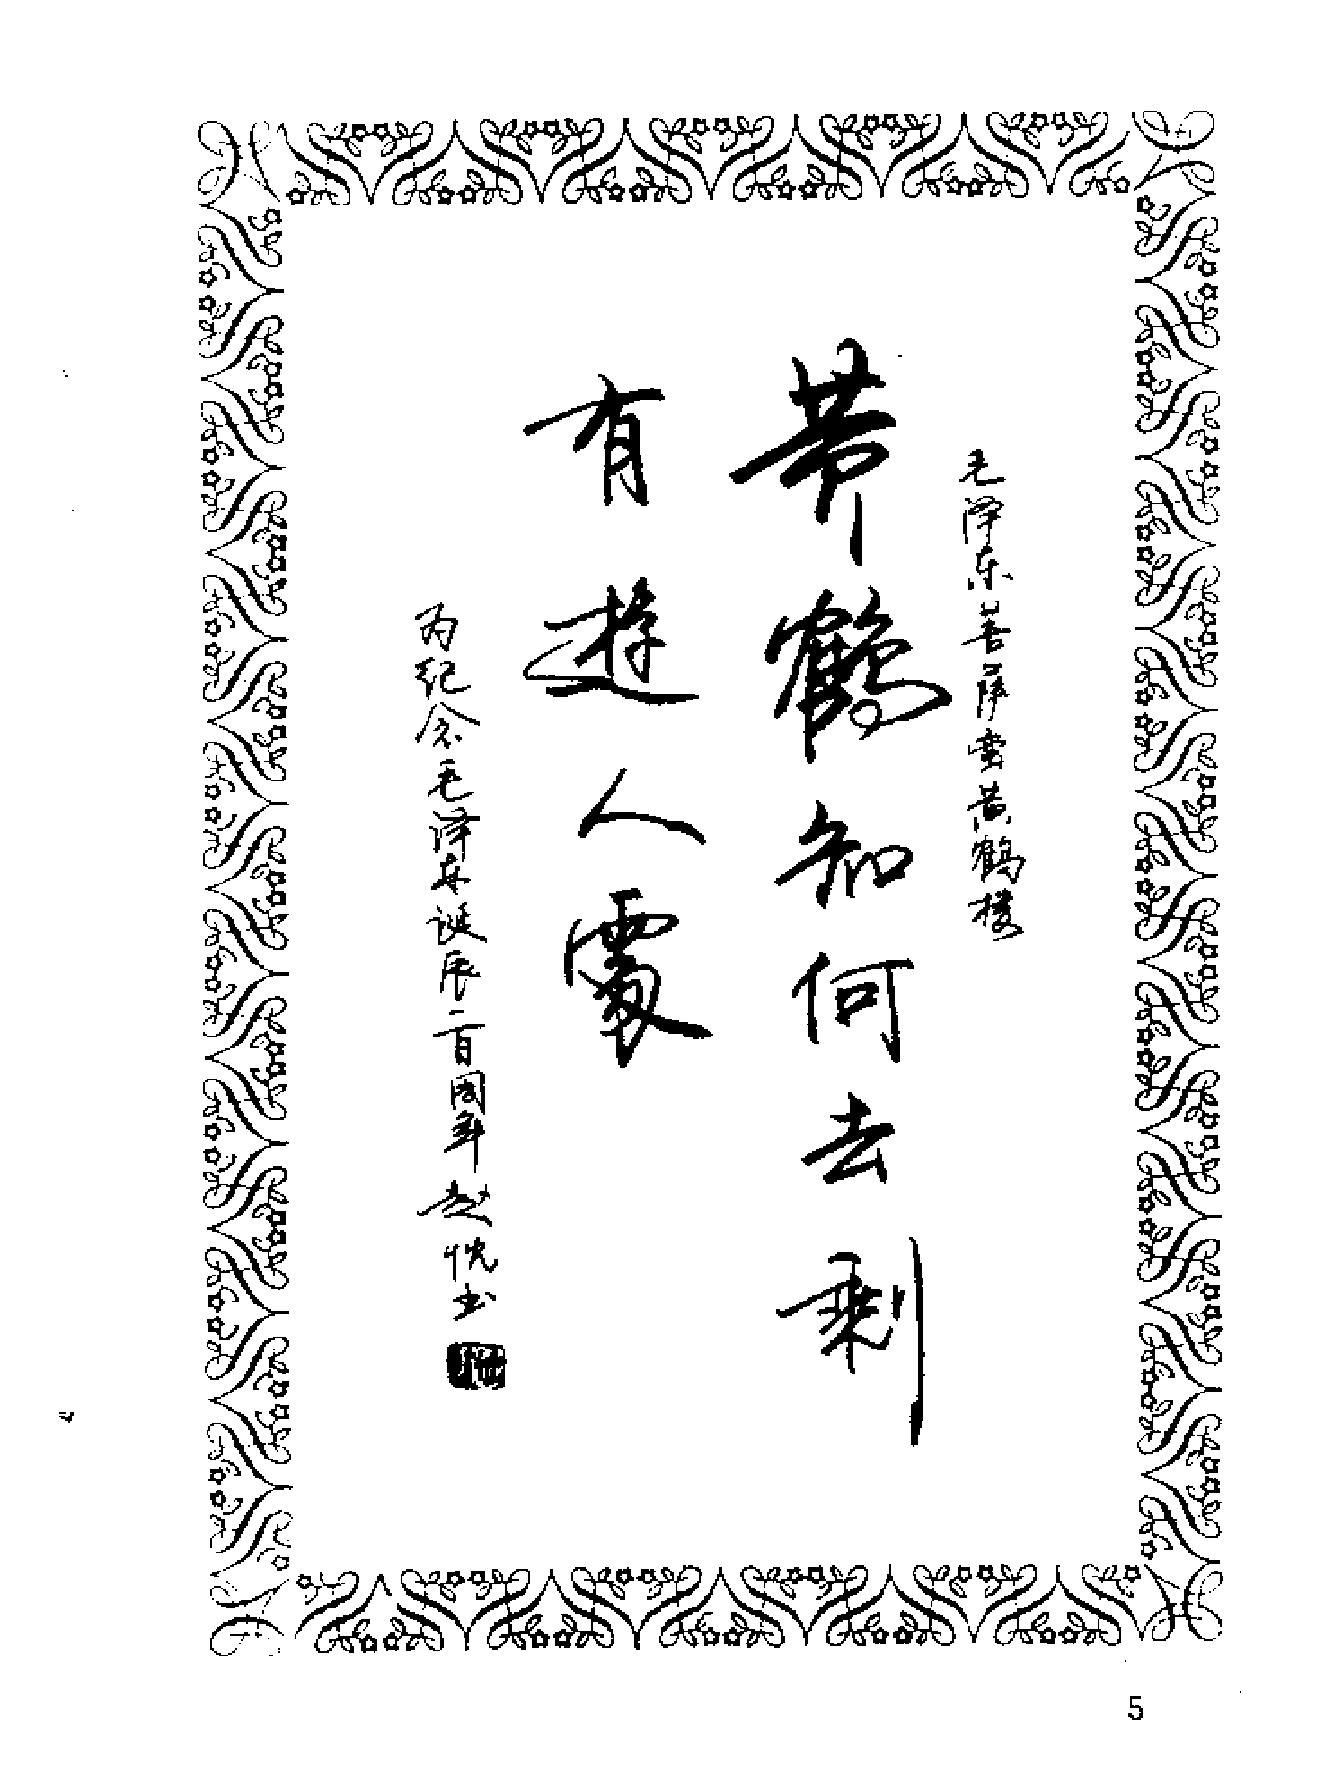 毛泽东菩萨蛮黄鹤楼
黄鶴知何去剩
有遊人處
为纪念毛泽东诞辰一百周年赵书
5